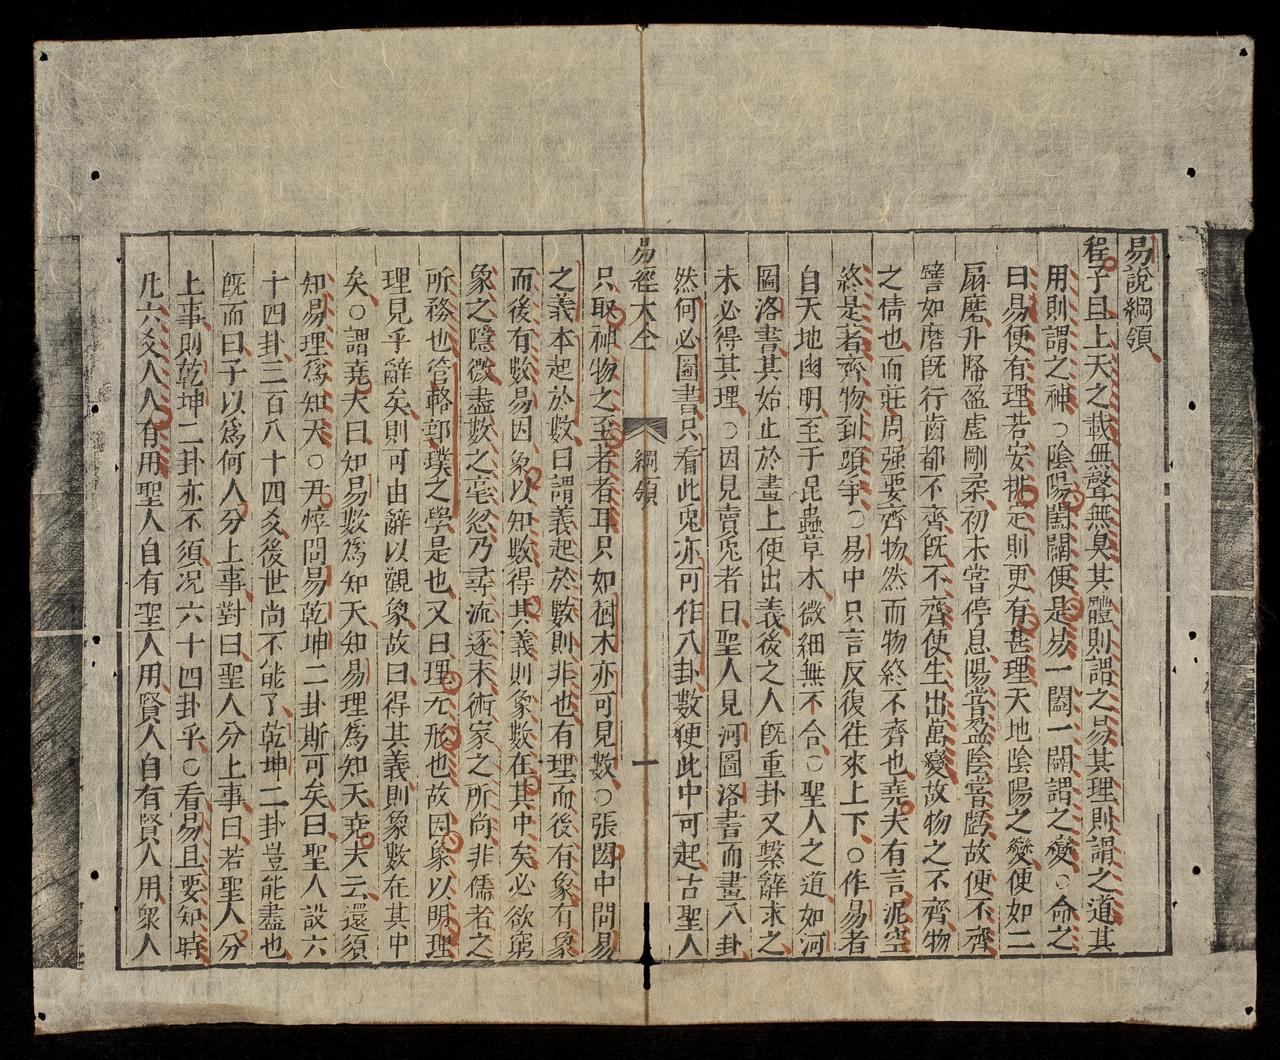 易說綱領
程子曰上天之載無聲無臭其體則謂之易其理則謂之道其
用則謂之神○陰陽闔闢便是易一闔一闢謂之變○命之
曰易便有理若安排定則更有甚理天地陰陽之變便如二
扇磨升降盈虛剛柔初未嘗停息陽常盈陰常虧故便不齊
譬如磨旣行齒都不齊旣不齊便生出萬變故物之不齊物
之情也而莊周强要齊物然而物終不齊也堯夫有言泥空
終是著齊物到頭爭○易中只言反復往來上下○作易者
自天地幽明至于昆蟲草木微細無不合○聖人之道如河
圖洛書其始止於畫上便出義後之人旣重卦又繫辭求之
未必得其理○因見賣兎者曰聖人見河圖洛書而畫八卦
然何必圖書只看此兎亦可作八卦數便此中可起古聖人
易經大全 綱領 一
只取神物之至著者耳只如樹木亦可見數○張閎中問易
之義本起於數曰謂義起於數則非也有理而後有象有象
而後有數易因象以知數得其義則象數在其中矣必欲窮
象之隱微盡數之毫忽乃尋流逐末術家之所尚非儒者之
所務也管輅郭璞之學是也又曰理无形也故因象以明理
理見乎辭矣則可由辭以觀象故曰得其義則象數在其中
矣○謂堯夫曰知易數爲知天知易理爲知天堯夫云還須
知易理爲知天○尹焞問易乾坤二卦斯可矣曰聖人設六
十四卦三百八十四爻後世尚不能了乾坤二卦豈能盡也
旣而曰子以爲何人分上事對曰聖人分上事曰若聖人分
上事則乾坤二卦亦不須况六十四卦乎○看易且要知時
凡六爻人人有用聖人自有聖人用賢人自有賢人用衆人